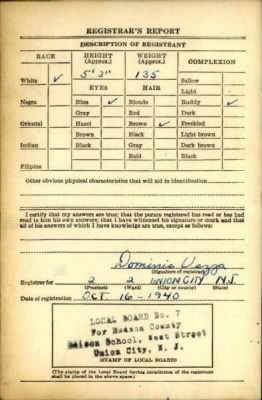 REGISTRAR'S REPORT
DESCRIPTION OF REGISTRANT
RACE HEIGHT (Approx.) WEIGHT (Approx.) COMPLEXION
White ✓ 5' 2" 135 Sallow
Light
EYES HAIR
Negro Blue ✓ Blonde Ruddy ✓
Gray Red Dark
Oriental Hazel Brown ✓ Freckled
Brown Black Light brown
Indian Black Gray Dark brown
Bald Black
Filipino
Other obvious physical characteristics that will aid in identification
I certify that my answers are true; that the person registered has read or has had
read to him his own answers; that I have witnessed his signature or mark and that
all of his answers of which I have knowledge are true, except as follows:
Dominic
(Signature of registrar)
Registrar for 2 2 UNION CITY N.J.
(Precinct) (Ward) (City or county) (State)
Date of registration OCT. 16 - 1940
LOCAL BOARD No. 7
For Hudson County
School, West Street
Union City, N. J.
(STAMP OF LOCAL BOARD)
(The stamp of the Local Board having jurisdiction of the registrant
shall be placed in the above space.)